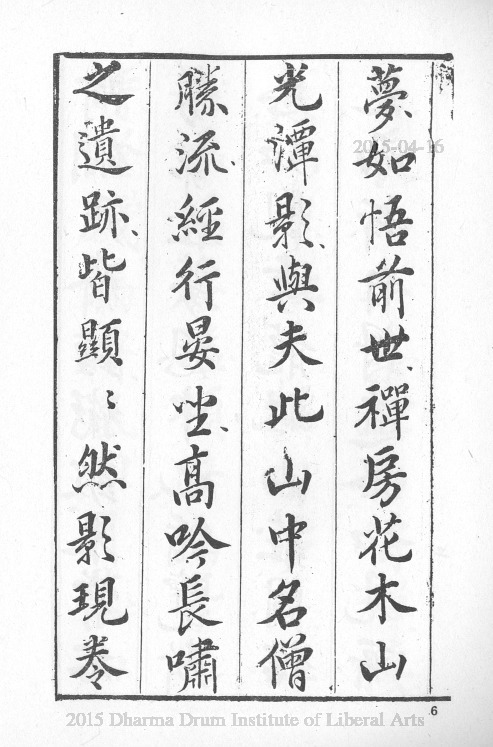 夢如悟前世禪房花木山
光潭影與夫此山中名僧
勝流經行晏坐高吟長嘯
之遺跡皆顯〻然影現卷
6
2015-04-16
2015 Dharma Drum Institute of Liberal Arts